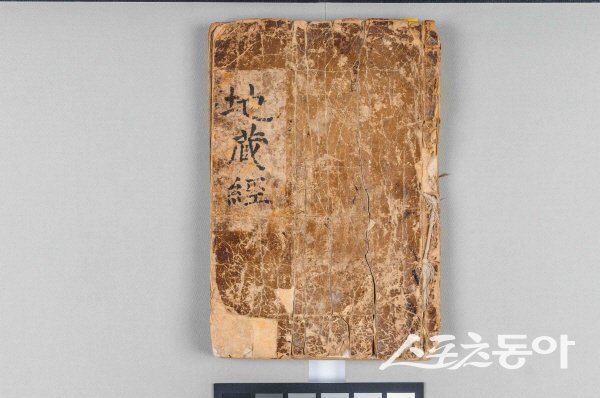 地藏經
스포츠동아